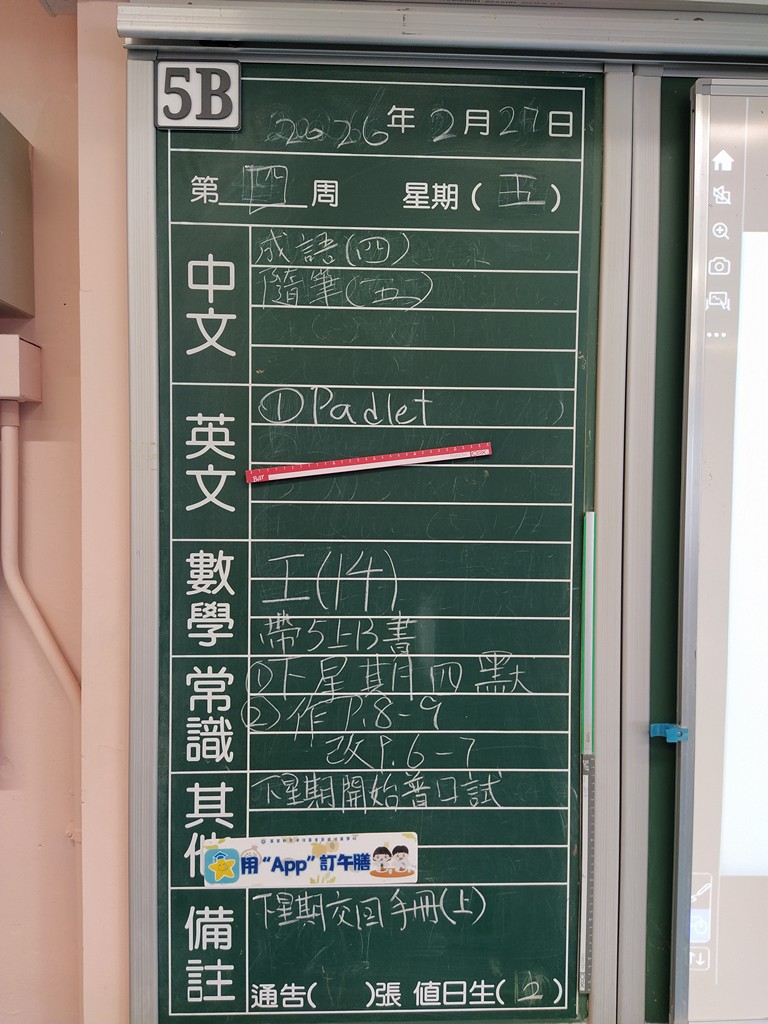 5B
2026年2月27日
第四周 星期(五)
中文
成語(四)
隨筆(五)
英文
①Padlet
數學
工(14)
帶5上B書
常識
①下星期四默
②作P.8-9
改P.6-7
其他
下星期開始普口試
用“App”訂午膳
備註
下星期交回手冊(上)
通告( )張 值日生(2)